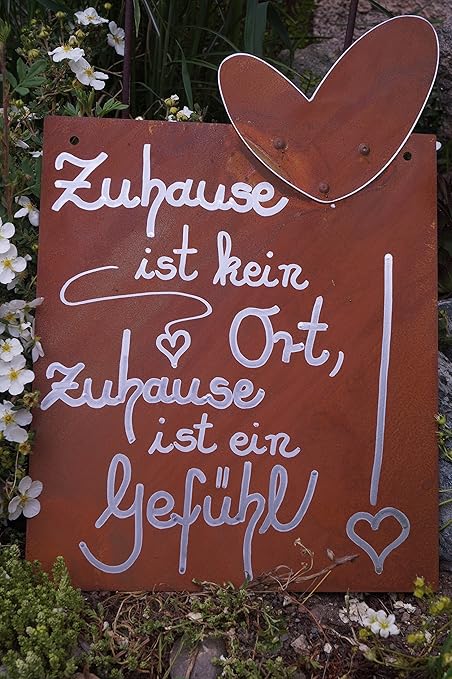 Zuhause
ist kein
Ort,
zuhause
ist ein
Gefühl!